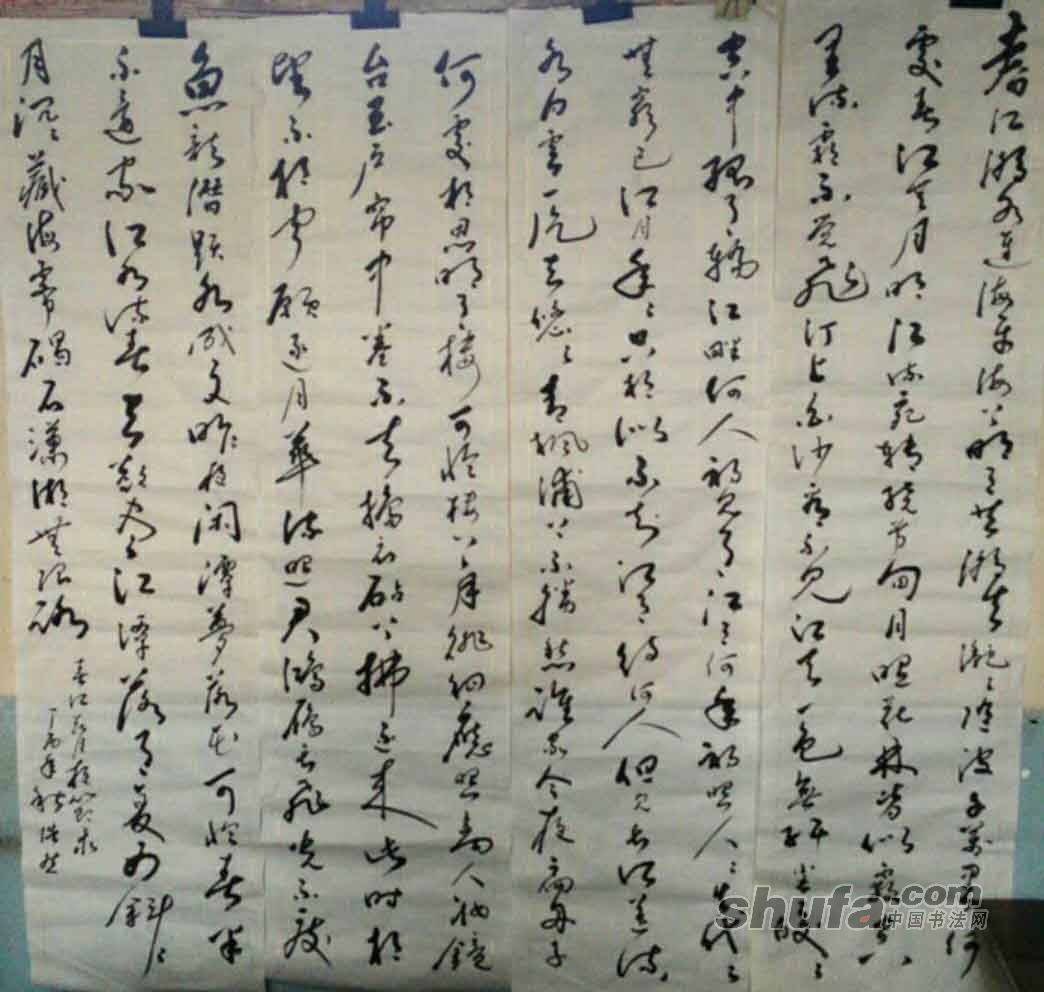 春江潮水连海平海上明月共潮生滟滟随波千万里何
处春江无月明江流宛转绕芳甸月照花林皆似霰空
里流霜不觉飞汀上白沙看不见江天一色无纤尘皎皎
空中孤月轮江畔何人初见月江月何年初照人人生代代
无穷已江月年年只相似不知江月待何人但见长江送流
水白云一片去悠悠青枫浦上不胜愁谁家今夜扁舟子
何处相思明月楼可怜楼上月徘徊应照离人妆镜
台玉户帘中卷不去捣衣砧上拂还来此时相
望不相闻愿逐月华流照君鸿雁长飞光不度
鱼龙潜跃水成文昨夜闲潭梦落花可怜春半
不还家江水流春去欲尽江潭落月复西斜斜
月沉沉藏海雾碣石潇湘无限路
春江花月夜
shufa.com
中国书法网